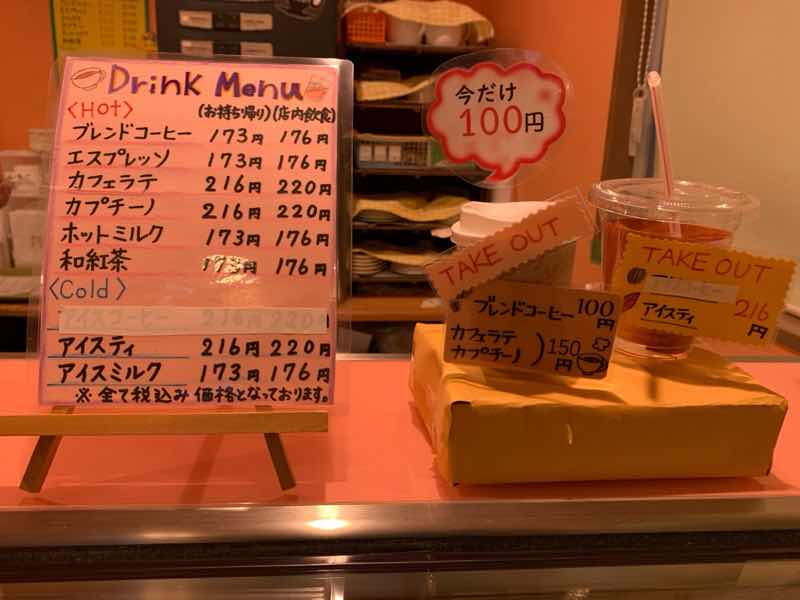 Drink Menu
<Hot> (お持ち帰り) (店内飲食)
ブレンドコーヒー 173円 176円
エスプレッソ 173円 176円
カフェラテ 216円 220円
カプチーノ 216円 220円
ホットミルク 173円 176円
和紅茶 173円 176円
<Cold>
アイスコーヒー 216円 220円
アイスティ 216円 220円
アイスミルク 173円 176円
※全て税込み価格となっております。
今だけ
100円
TAKE OUT
ブレンドコーヒー 100円
カフェラテ
カプチーノ ) 150円
TAKE OUT
アイスコーヒー
アイスティ 216円